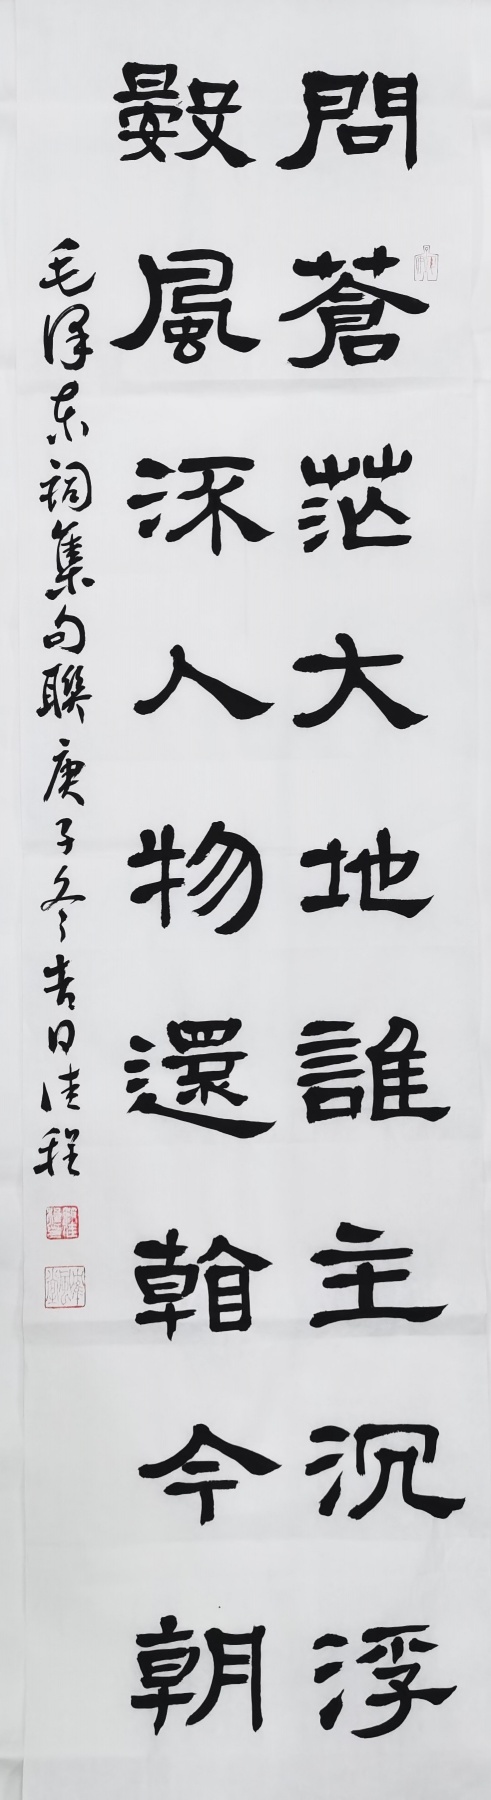 問蒼茫大地誰主沉浮
數風流人物還看今朝
毛澤東詞集句聯庚子冬吉日佳程